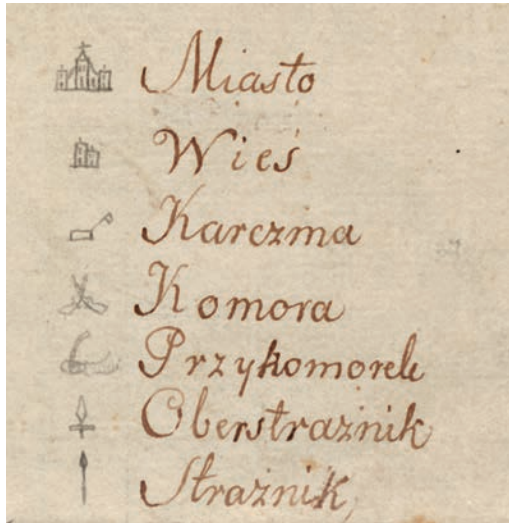 Miasto
Wieś
Karczma
Komora
Przykomorek
Oberstraźnik
Straźnik